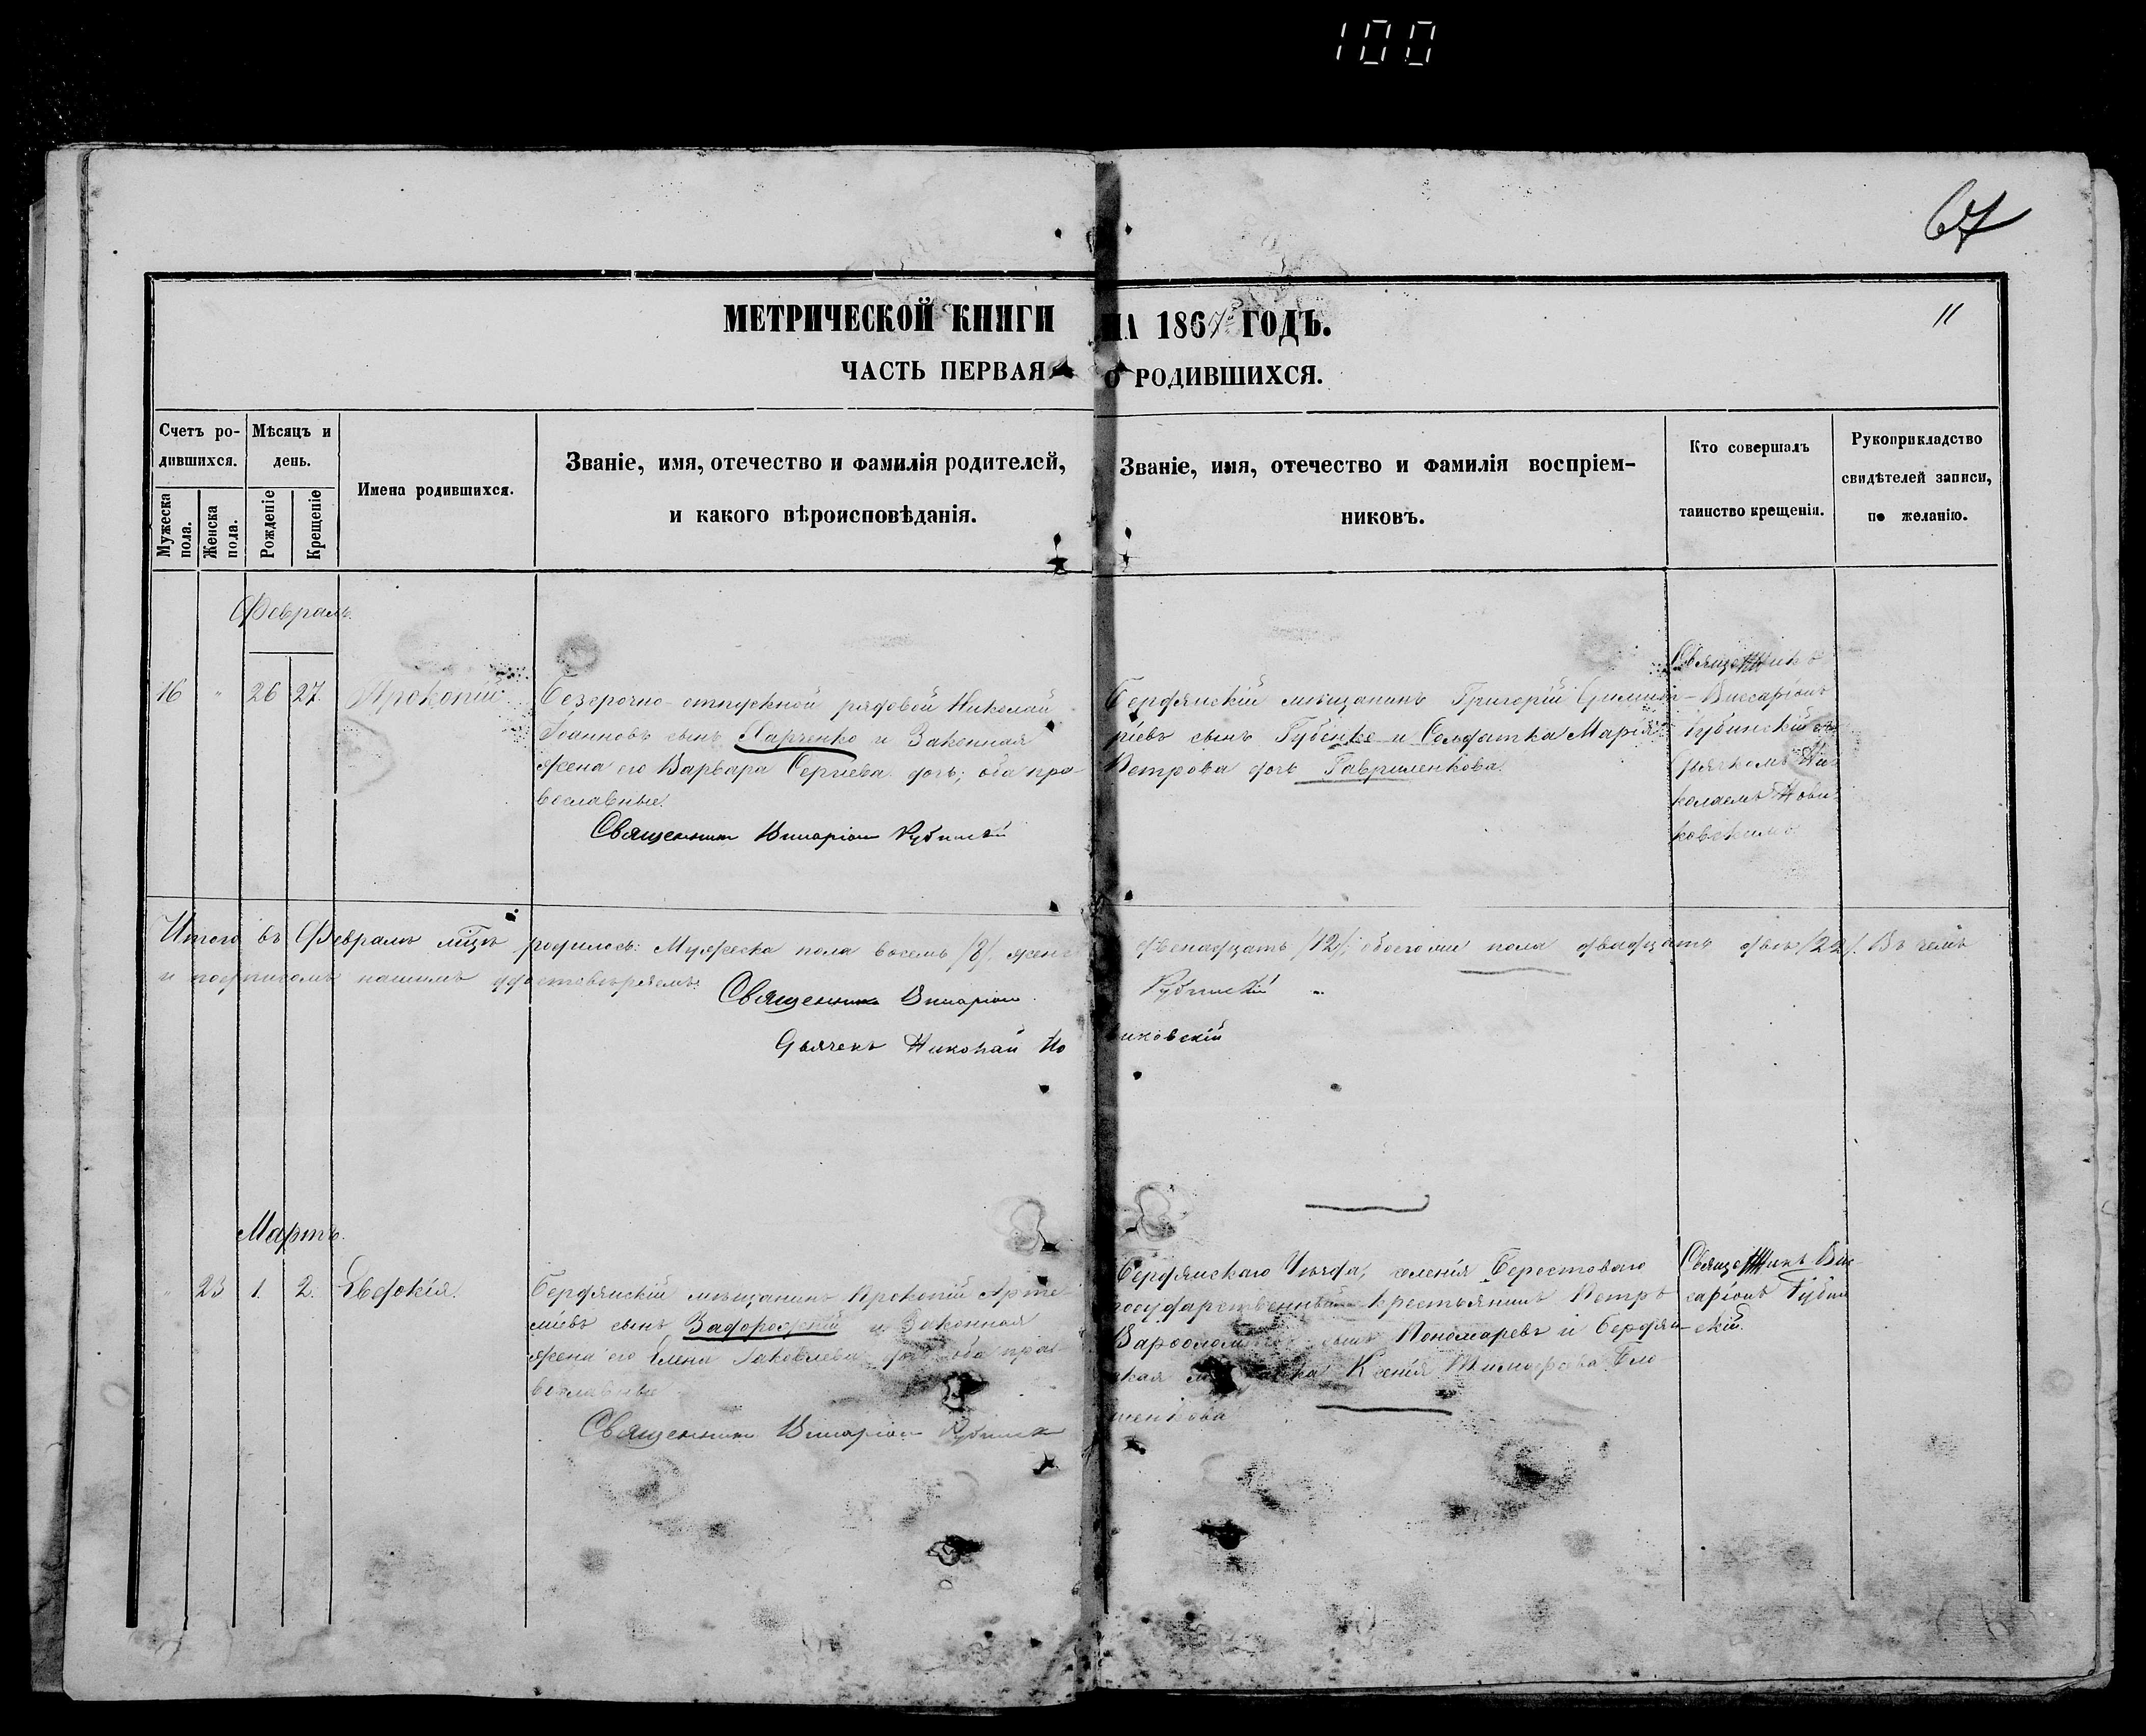 100
67
11
МЕТРИЧЕСКОЙ КНИГИ НА 1867 ГОДЪ.
ЧАСТЬ ПЕРВАЯ О РОДИВШИХСЯ.
Счетъ ро-
дившихся.
Мужеска пола.
Женска пола.
Мѣсяцъ и
день.
Рожденіе
Крещеніе
Имена родившихся.
Званіе, имя, отечество и фамилія родителей,
и какого вѣроисповѣданія.
Званіе, имя, отечество и фамилія воспріем-
никовъ.
Кто совершалъ
таинство крещенія.
Рукоприкладство
свидѣтелей записи,
по желанію.
Февраль.
16 " 26 27. Прокопій
Безсрочно-отпускной рядовой Николай
Іоанновъ сынъ Парченко и законная
жена его Варвара Сергіева дочь; оба пра-
вославные.
Священникъ Виссаріонъ Рубинскій
Бердянскій мѣщанинъ Григорій
сынъ Губенко и Солдатка Марія
Петрова дочь Гавриленкова.
Священникъ
Виссаріонъ
Рубинскій съ
дьячкомъ Ни-
колаемъ Нови-
ковскимъ.
Итого въ Февралѣ мѣсяцѣ родилось: Мужеска пола восемь /8/, женс двенадцать /12/, обоего пола двадцать два /22/. Въ чемъ
и подписомъ нашимъ удостовѣряемъ:
Священникъ Виссаріонъ Рубинскій
Дьячекъ Николай Новиковскій
Мартъ.
" 23 1. 2. Евдокія.
Бердянскій мѣщанинъ Прокопій Арте-
міевъ сынъ Задорожній и законная
жена его Елена Іаковлева дочь оба пра-
вославные
Священникъ Виссаріонъ Рубинск
Бердянскаго Уѣзда, селенія Берестоваго
государственный крестьянинъ Петръ
Варфоломѣевъ сынъ Пономаревъ и Бердян-
ская мѣщанка Ксенія
шенкова
Священникъ Вис-
саріонъ Рубин-
скій.